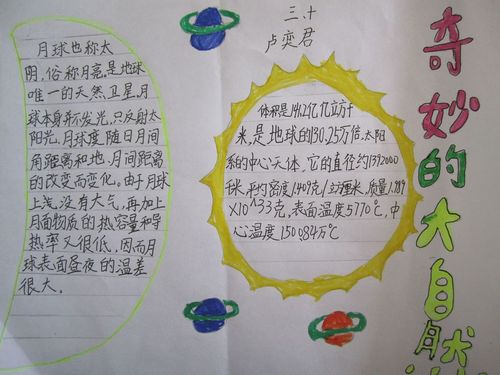 奇妙的大自然
三、十
卢奕君
月球也称太
阴,俗称月亮,是地球
唯一的天然卫星,月
球本身并不发光,只反射太
阳光。月球度随日月间
角距离和地、月间距离
的改变而变化。由于月球
上浅没有大气,再加上
月面物质的热容量和导
热率又很低,因而月
球表面昼夜的温差
很大。
体积是1412亿亿立方千
米,是地球的130.25万倍,太阳
系的中心天体,它的直径约1392000
平均密度1.409克/立方厘米,质量1.989
×10^33克,表面温度5770℃,中
心温度1500.84万℃